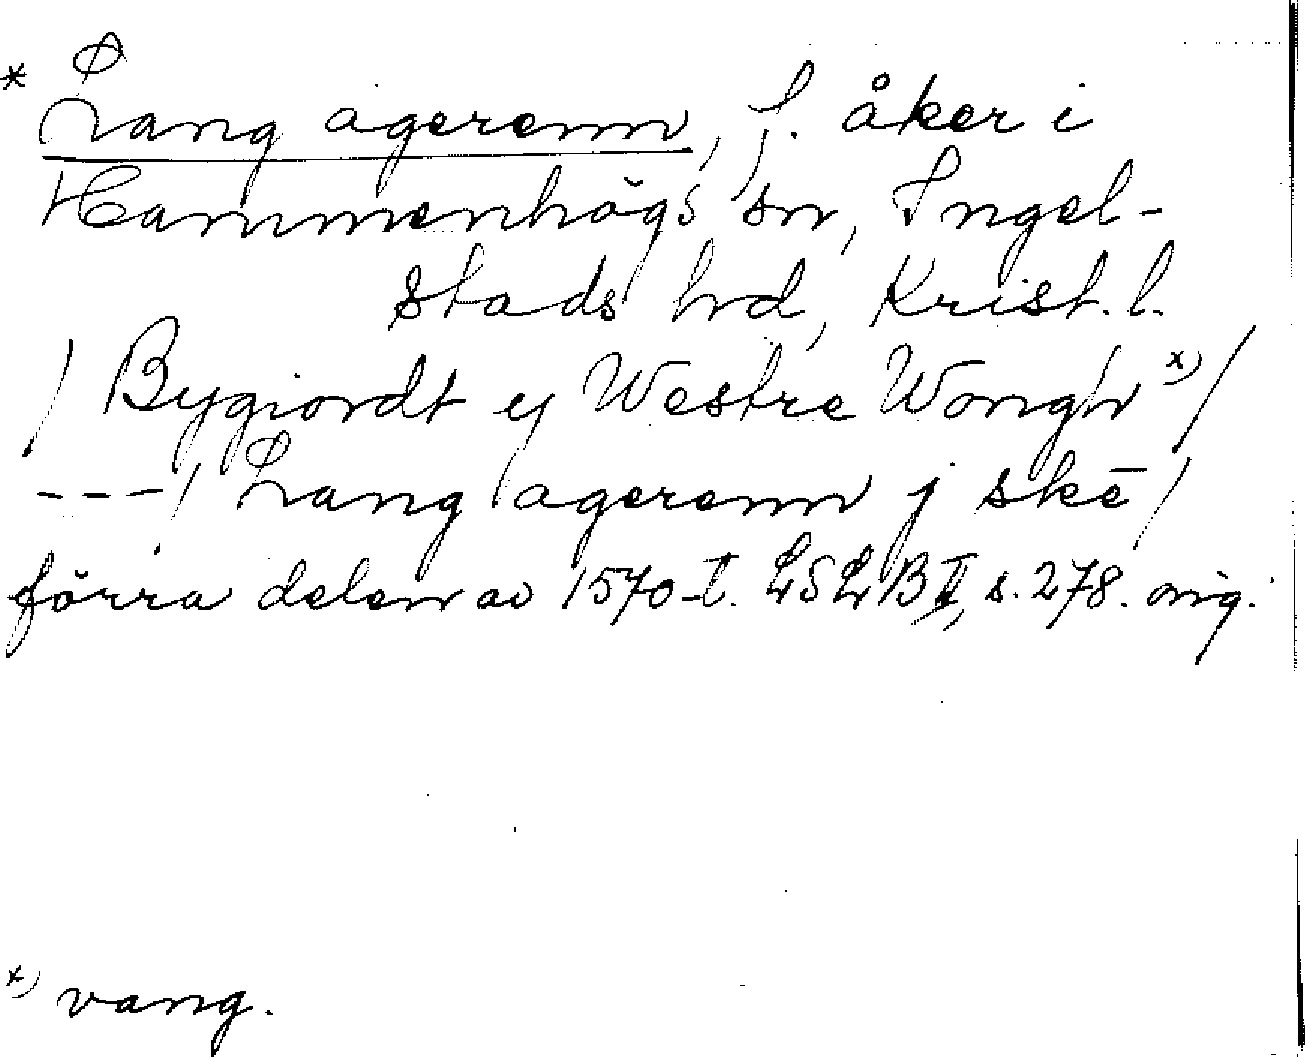 * Lang agerenn, f. åker i
Hammenhögs sn, Ingel-
stads hd, Krist. l.
/ Bygiordt ej Westre Wongh *) /
---/ Lang agerenn j skē /
förra delen av 1570-t. LSLB II, s. 278. orig.
*) vang.